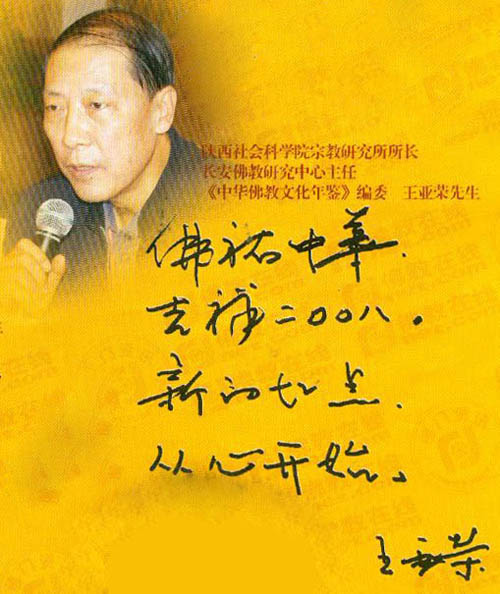 陕西社会科学院宗教研究所所长
长安佛教研究中心主任
《中华佛教文化年鉴》编委 王亚荣先生
佛祐中華.
吉祥二〇〇八。
新的起点.
从心开始。
王亚荣